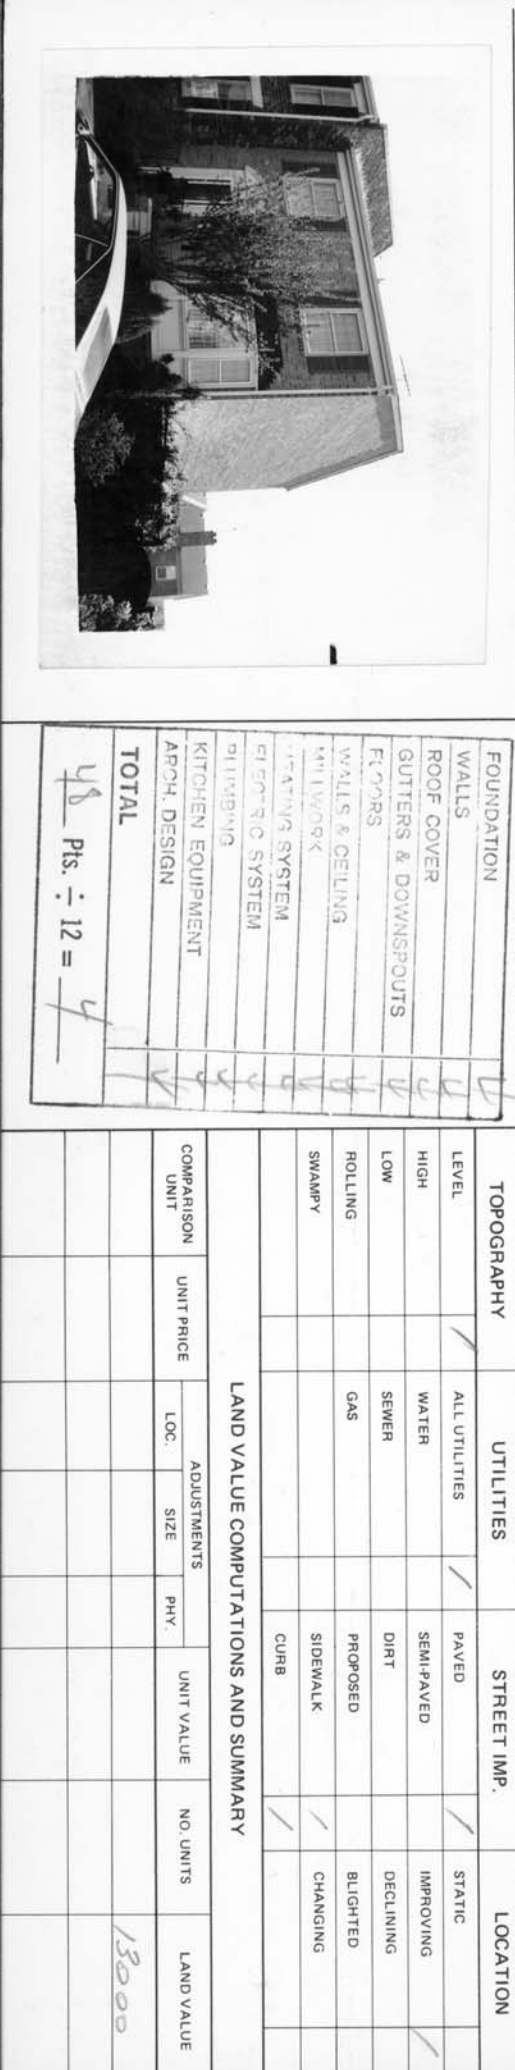 FOUNDATION 4
WALLS 4
ROOF COVER 4
GUTTERS & DOWNSPOUTS 4
FLOORS 4
WALLS & CEILING 4
MILLWORK 4
HEATING SYSTEM 4
ELECTRIC SYSTEM 4
PLUMBING 4
KITCHEN EQUIPMENT 4
ARCH. DESIGN 4
TOTAL
48 Pts. ÷ 12 = 4
TOPOGRAPHY UTILITIES STREET IMP. LOCATION
LEVEL / ALL UTILITIES / PAVED / STATIC
HIGH WATER SEMI-PAVED IMPROVING /
LOW SEWER DIRT DECLINING
ROLLING GAS PROPOSED BLIGHTED
SWAMPY SIDEWALK / CHANGING
CURB /
LAND VALUE COMPUTATIONS AND SUMMARY
COMPARISON UNIT UNIT PRICE ADJUSTMENTS UNIT VALUE NO. UNITS LAND VALUE
LOC. SIZE PHY.
13000